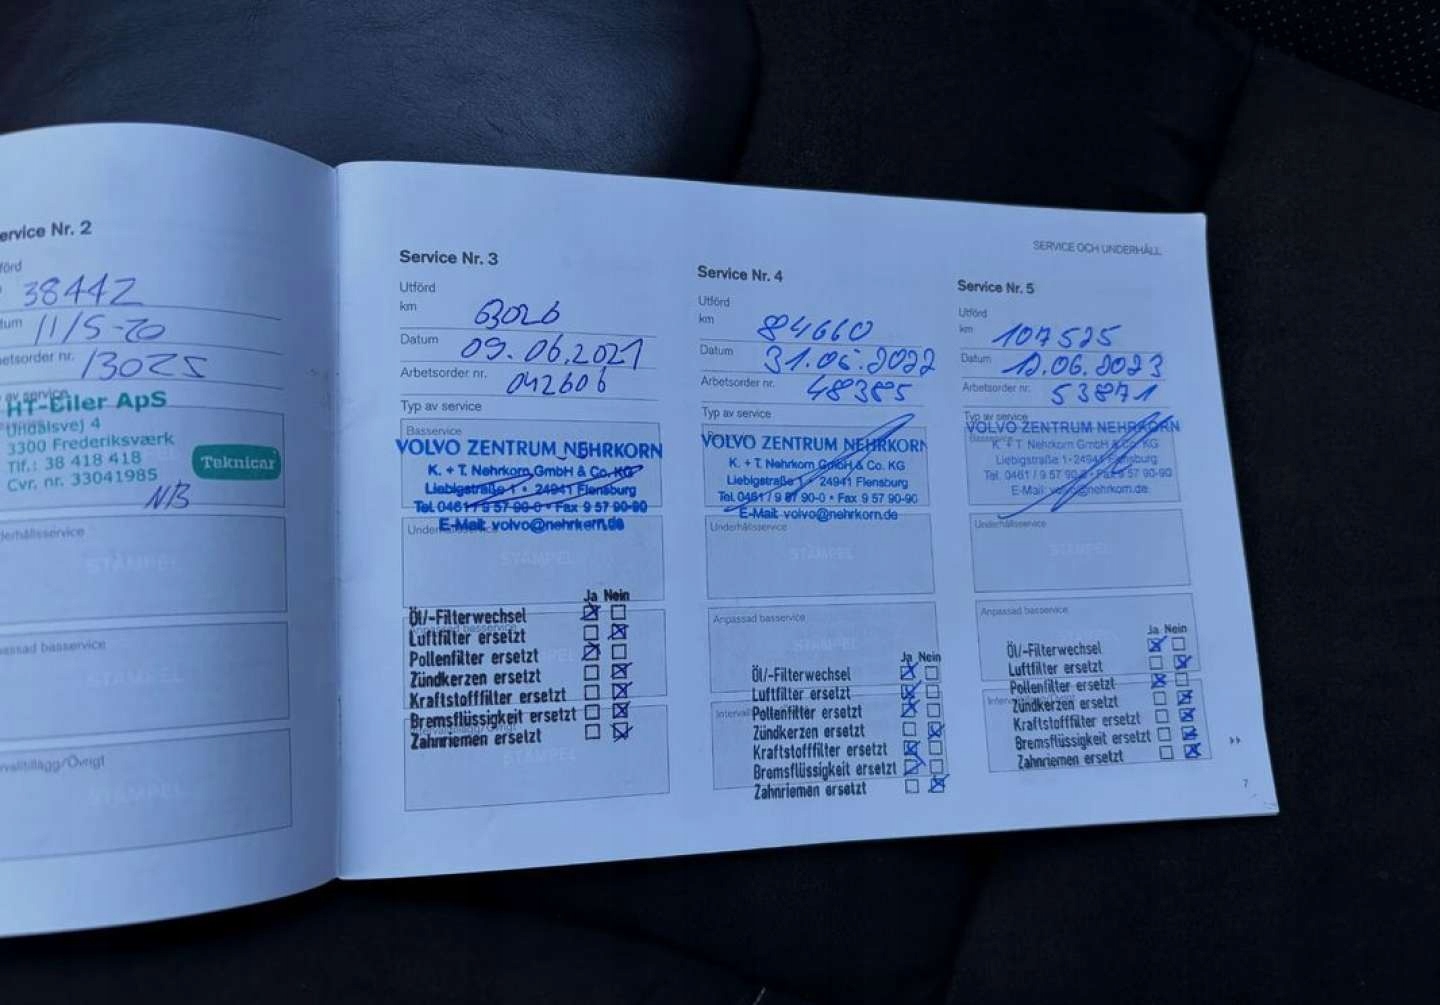 ervice Nr. 2
förd
38442
tum 11/5-20
etsorder nr. 13025
av service
HT-Biler ApS
Undalsvej 4
3300 Frederiksværk
Tlf.: 38 418 418
Cvr. nr. 33041985
Teknicar
NB
derhållsservice
STÄMPEL
passad basservice
STÄMPEL
ervalltillägg/Övrigt
STÄMPEL
SERVICE OCH UNDERHÅLL
Service Nr. 3
Utförd
km 63026
Datum 09.06.2021
Arbetsorder nr. 042606
Typ av service
Basservice
VOLVO ZENTRUM NEHRKORN
K. + T. Nehrkorn GmbH & Co. KG
Liebigstraße 1 • 24941 Flensburg
Tel. 0461 / 9 57 90-0 • Fax 9 57 90-90
E-Mail: volvo@nehrkorn.de
Underhållsservice
STÄMPEL
Anpassad basservice
Ja Nein
Öl/-Filterwechsel
Luftfilter ersetzt
Pollenfilter ersetzt
Zündkerzen ersetzt
Kraftstofffilter ersetzt
Bremsflüssigkeit ersetzt
Zahnriemen ersetzt
Intervalltillägg/Övrigt
STÄMPEL
Service Nr. 4
Utförd
km 84660
Datum 31.05.2022
Arbetsorder nr. 48385
Typ av service
VOLVO ZENTRUM NEHRKORN
K. + T. Nehrkorn GmbH & Co. KG
Liebigstraße 1 • 24941 Flensburg
Tel. 0461 / 9 57 90-0 • Fax 9 57 90-90
E-Mail: volvo@nehrkorn.de
Underhållsservice
STÄMPEL
Anpassad basservice
Ja Nein
Öl/-Filterwechsel
Luftfilter ersetzt
Pollenfilter ersetzt
Zündkerzen ersetzt
Kraftstofffilter ersetzt
Bremsflüssigkeit ersetzt
Zahnriemen ersetzt
Service Nr. 5
Utförd
km 107525
Datum 12.06.2023
Arbetsorder nr. 53871
Typ av service
Basservice
VOLVO ZENTRUM NEHRKORN
K. + T. Nehrkorn GmbH & Co. KG
Liebigstraße 1 • 24941 Flensburg
Tel. 0461 / 9 57 90-0 • Fax 9 57 90-90
E-Mail: volvo@nehrkorn.de
Underhållsservice
STÄMPEL
Anpassad basservice
Ja Nein
Öl/-Filterwechsel
Luftfilter ersetzt
Pollenfilter ersetzt
Zündkerzen ersetzt
Kraftstofffilter ersetzt
Bremsflüssigkeit ersetzt
Zahnriemen ersetzt
7